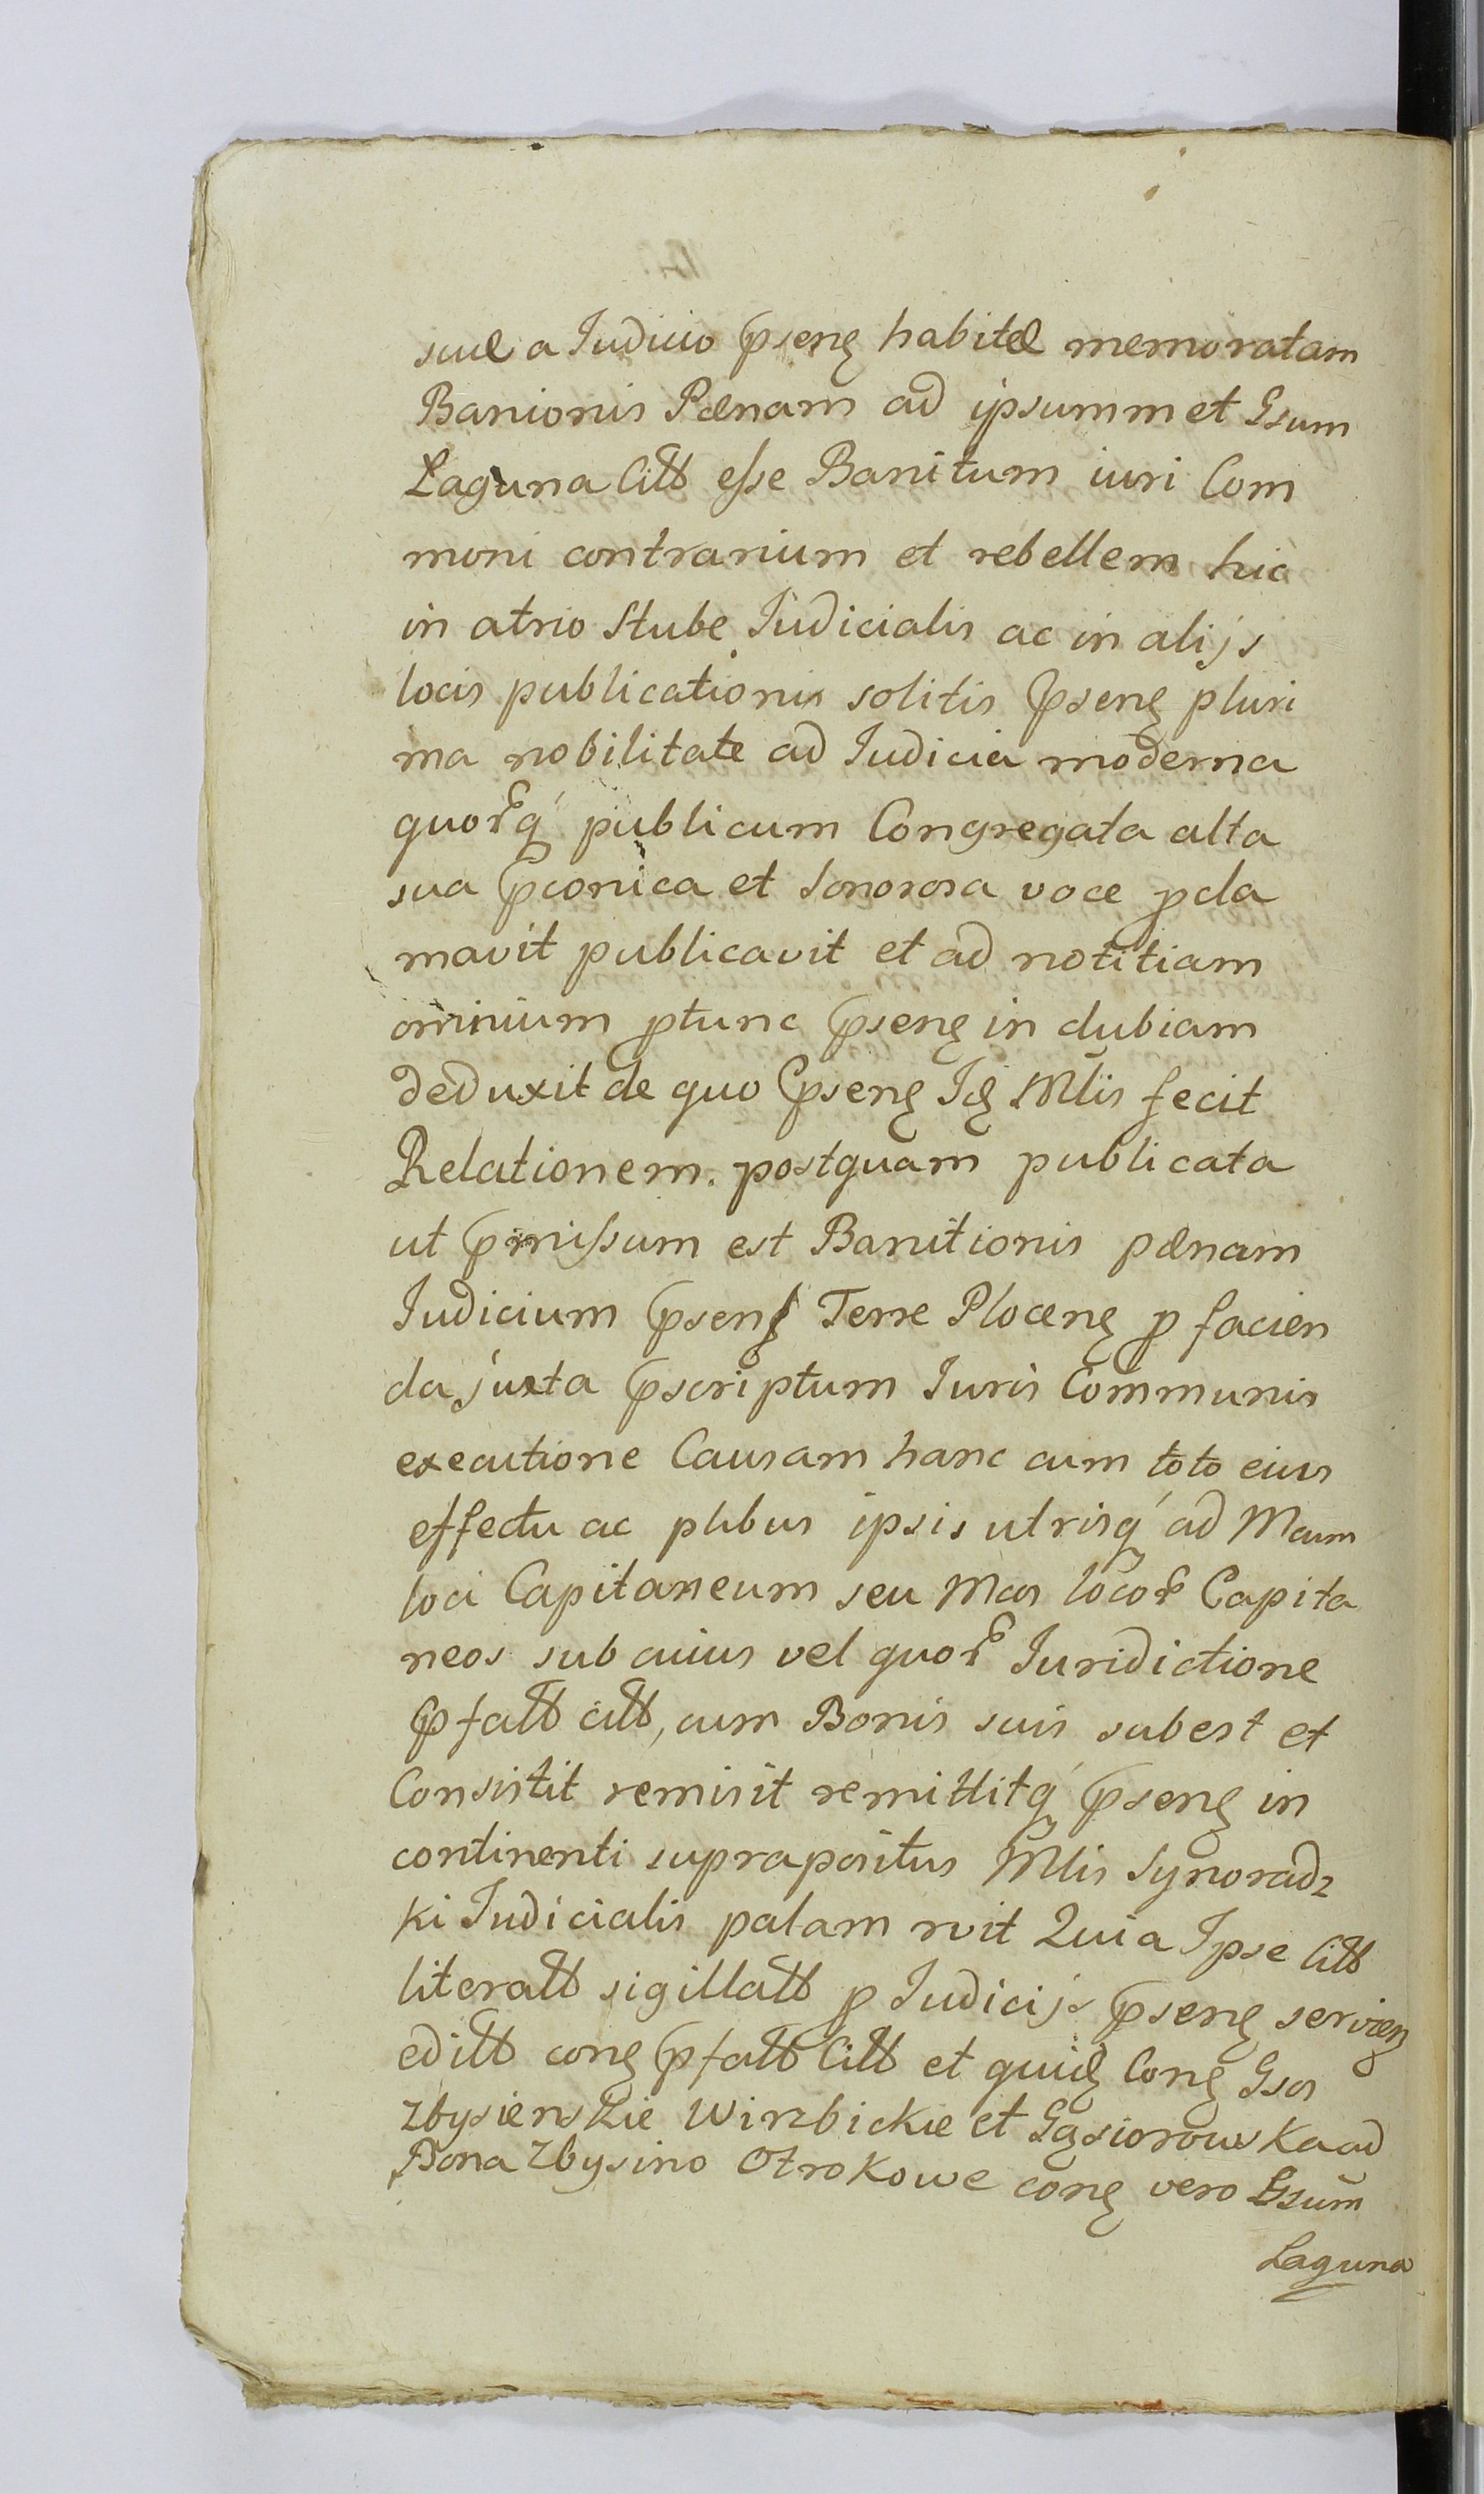 suæ a Iudicio pseng habitæ memoratam
Banionis Pænam ad ipsummet Gsum
Laguna Citt esse Banitum iuri Com
moni contrarium et rebellem hic
in atrio Stube Iudicialis ac in alijs
locis publicationis solitis pseng pluri
ma nobilitate ad Iudicia moderna
quorq publicum Congregata alta
sua pconica et sonorosa voce pcla
mavit publicavit et ad notitiam
omnium ptunc pseng in dubiam
deduxit de quo pseng Idg Mlis fecit
Relationem. postquam publicata
ut pmissum est Banitionis pænam
Iudicium pseng Terre Ploceng p facien
da juxta pscriptum Iuris Communis
executione Causam hanc cum toto eius
effectu ac ptibus ipsis utrisq ad Mcum
loci Capitaneum seu Mcos locor Capita
neos sub cuius vel quor Iuridictione
pfatt citt, cum Bonis suis subest et
Consistit remisit remittitq pseng in
continenti suprapositus Mlis Synoradz
ki Iudicialis palam rvit Quia Ipse Citt
literatt sigillatt p Iudicijs pseng servieng
editt cong pfatt Citt et quidg Cong Gsos
Zbysienskie Wirzbickie et Gąsiorowska ad
Bona Zbysino Otrokowe cong vero Gsum
Laguna